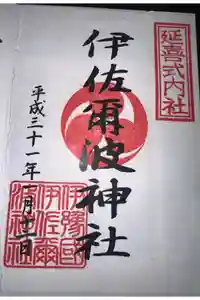 延喜式内社
伊佐爾波神社
平成三十一年
伊豫國
伊佐爾